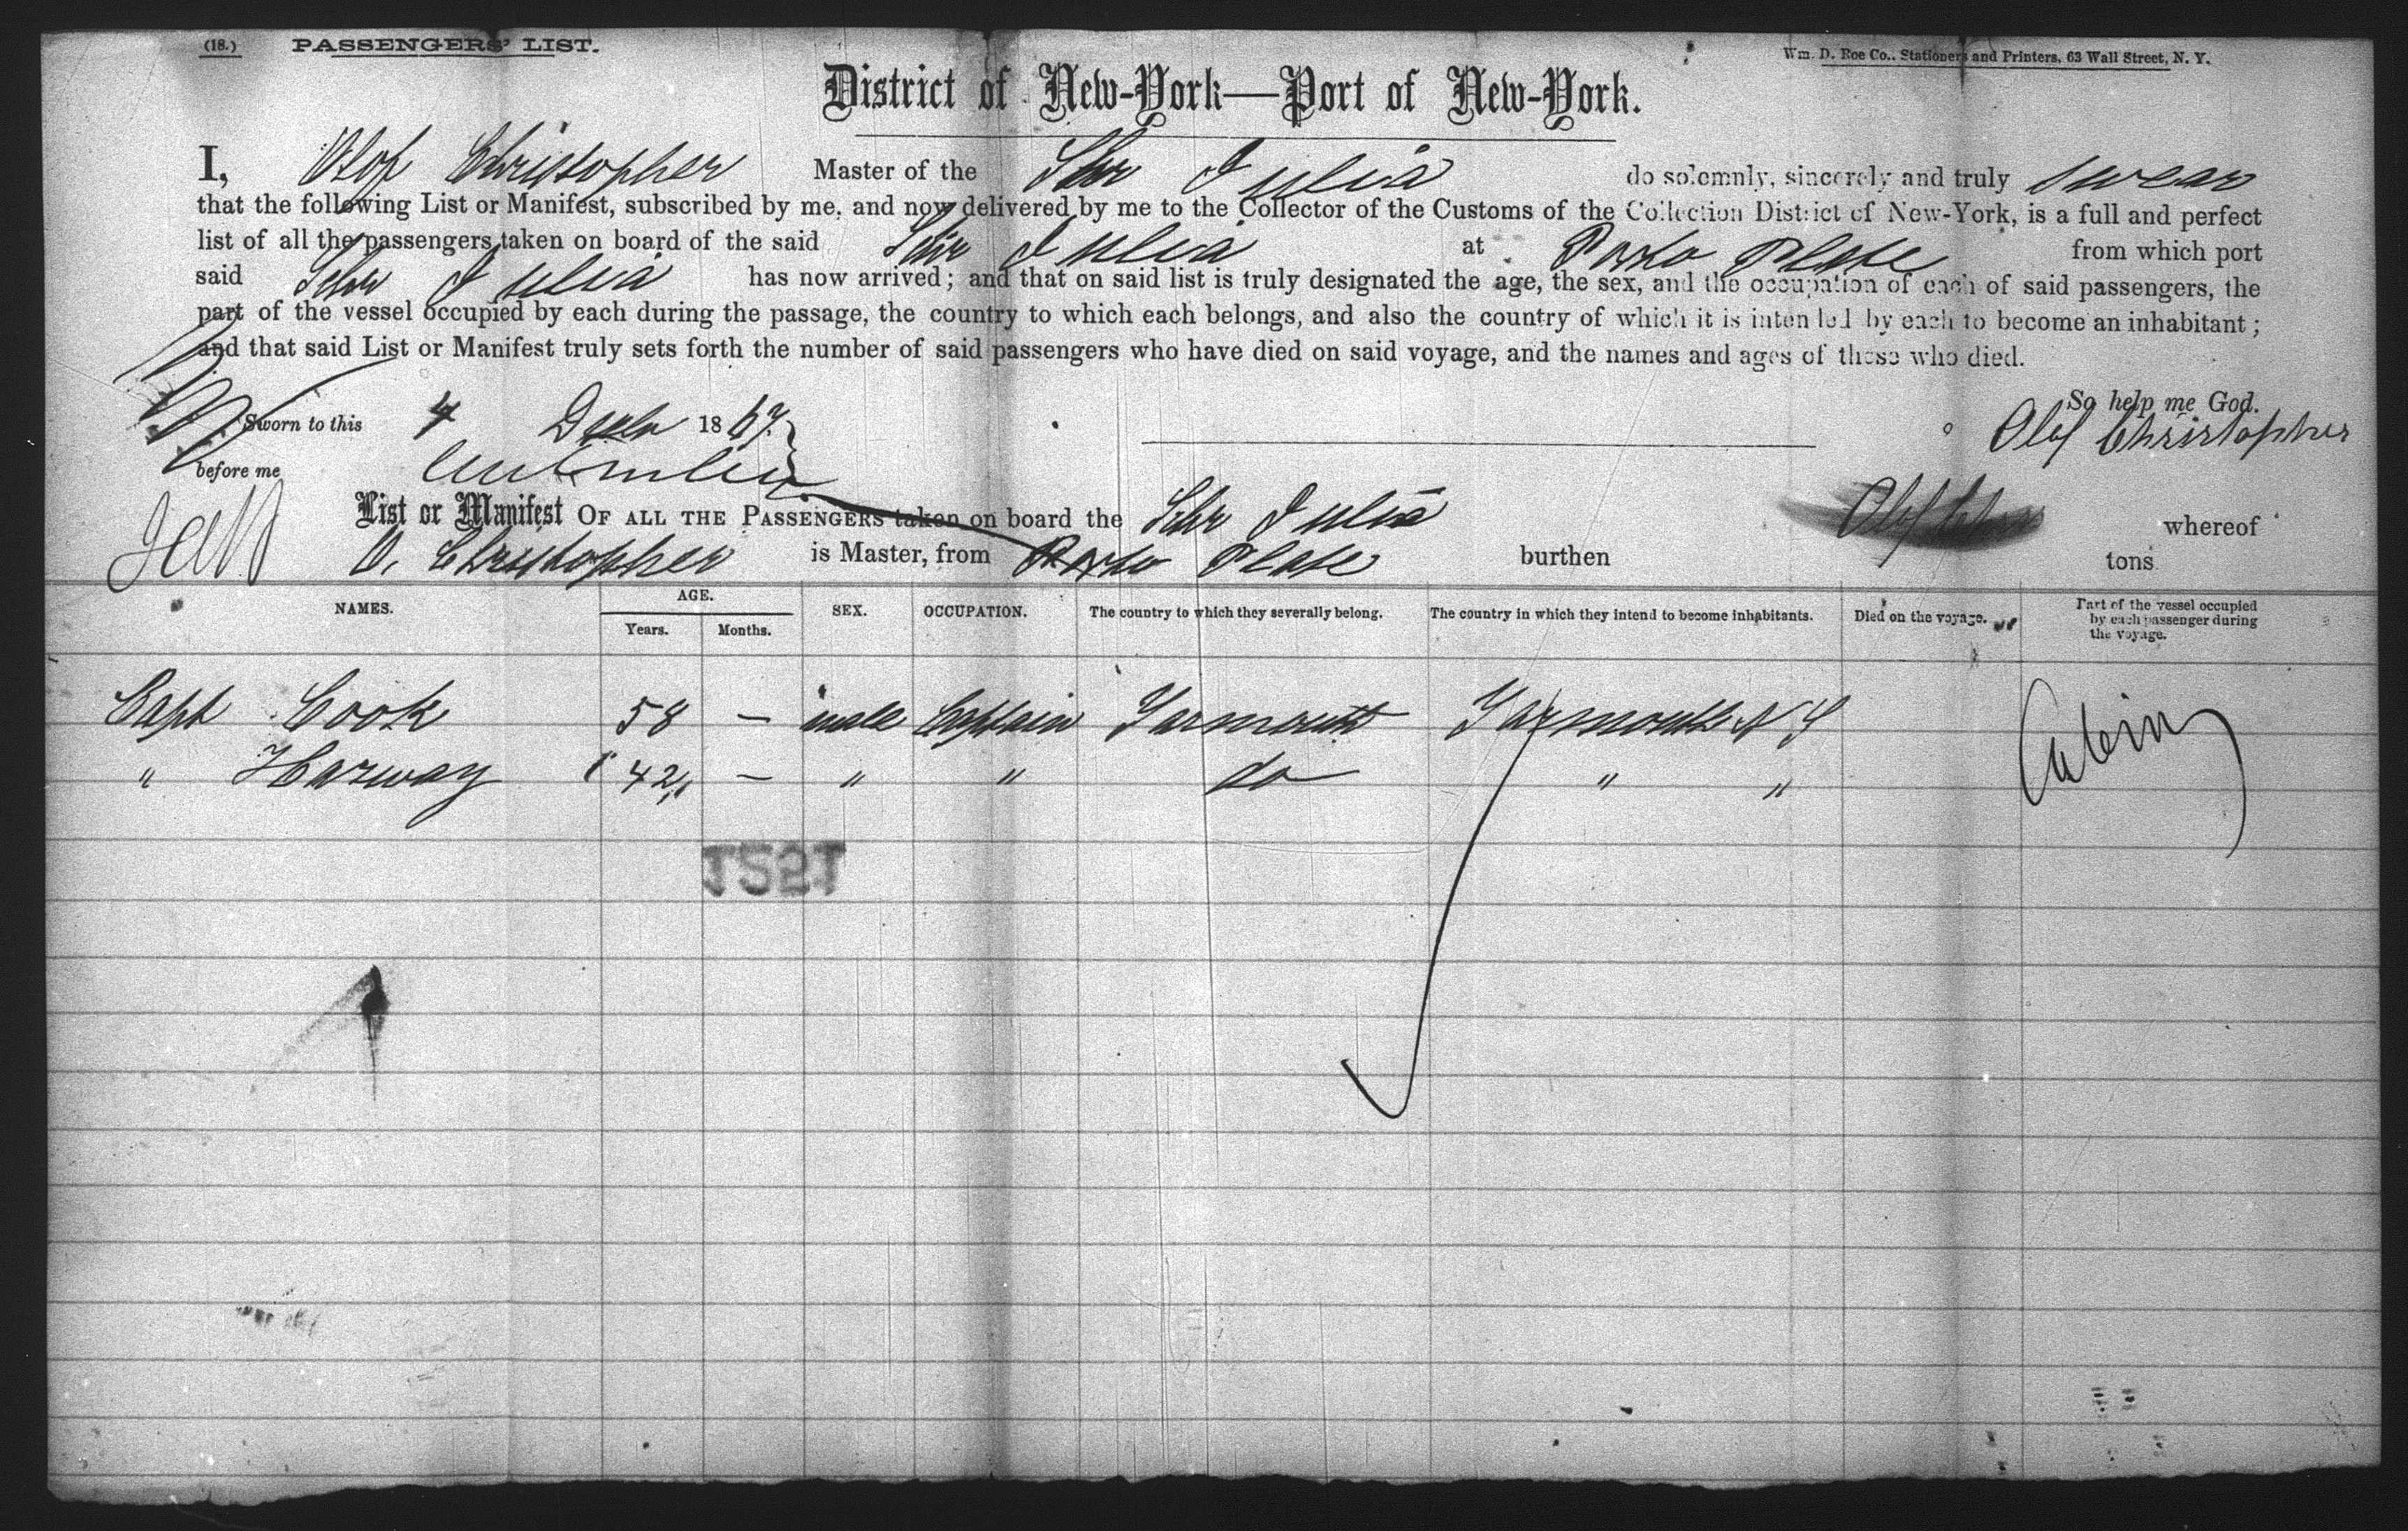 (18.) PASSENGERS' LIST.
Wm. D. Roe Co., Stationers and Printers, 63 Wall Street, N. Y.
District of New-York—Port of New-York.
I, Olof Christopher Master of the Schr Julia do solemnly, sincerely and truly swear
that the following List or Manifest, subscribed by me, and now delivered by me to the Collector of the Customs of the Collection District of New-York, is a full and perfect
list of all the passengers taken on board of the said Schr Julia at Porto Plate from which port
said Schr Julia has now arrived; and that on said list is truly designated the age, the sex, and the occupation of each of said passengers, the
part of the vessel occupied by each during the passage, the country to which each belongs, and also the country of which it is intended by each to become an inhabitant;
and that said List or Manifest truly sets forth the number of said passengers who have died on said voyage, and the names and ages of those who died.
So help me God.
Sworn to this 4 1867
Olof Christopher
before me
List or Manifest OF ALL THE PASSENGERS taken on board the Schr Julia whereof
O. Christopher is Master, from Porto Plate burthen tons
NAMES. AGE. Years. Months. SEX. OCCUPATION. The country to which they severally belong. The country in which they intend to become inhabitants. Died on the voyage. Part of the vessel occupied by each passenger during the voyage.
Capt Cook 58 — male Captain Yarmouth Yarmouth N S Cabin
" Harway 42 — " " do " "